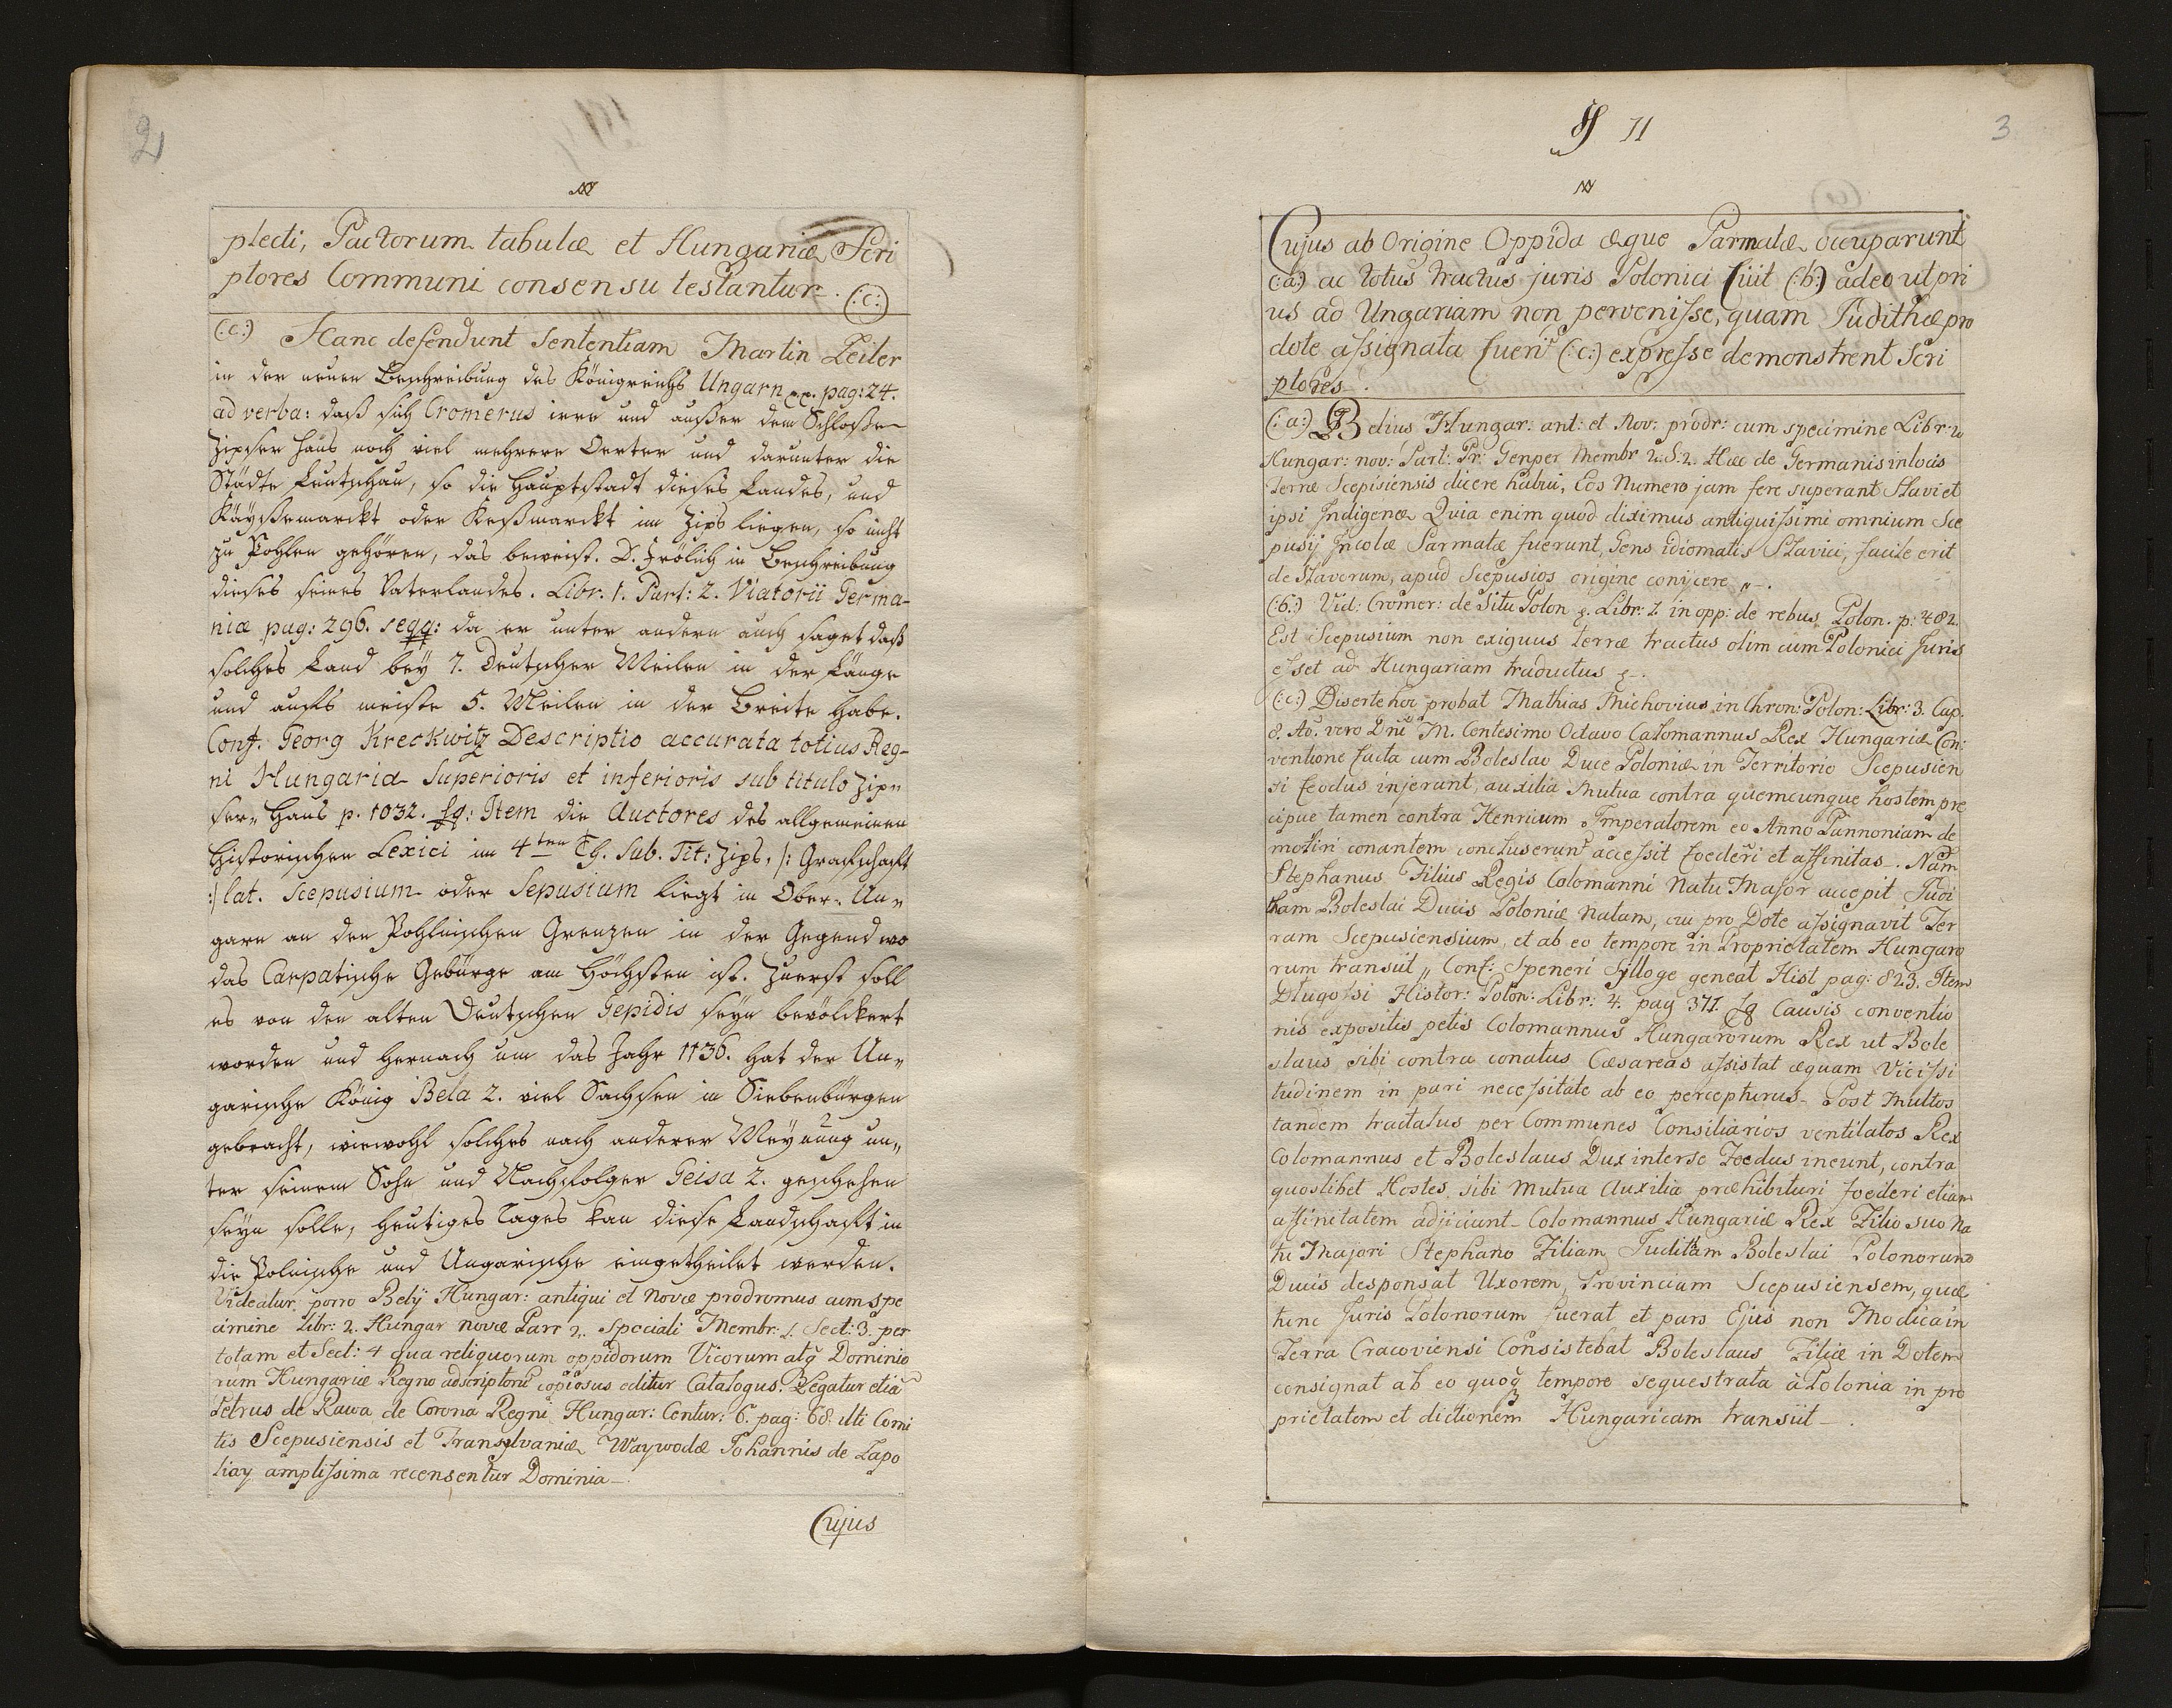 2
plecti, Pactorum tabulæ et Hungariæ Scri
ptores Communi consensu testantur. (:c:)
(:c:) Hanc defendunt Sententiam Martin Zeiler
in der neuen Beschreibung des Königreichs Ungarn pag: 24.
ad verba: daß sich Cromerus irre und außer dem Schloße
Zipser Haus noch viel mehrere Oerter und darunter die
Städte Leutschau, so die Hauptstadt dieses Landes, und
Käyßemarckt oder Keßmarckt im Zips liegen, so nicht
zu Pohlen gehören, das beweist. D. Frölich in Beschreibung
dieses seines Vaterlandes. Libr. 1. Part: 2. Viatorii Germa-
niæ pag: 296. seqq: da er unter andern auch saget daß
solches Land bey 7. Deutscher Meilen in der Länge
und aufs meiste 5. Meilen in der Breite habe.
Conf. Georg Kreckwitz Descriptio accurata totius Reg-
ni Hungariæ Superioris et inferioris sub titulo Zip„
ser„ Haus p. 1032. sq: Item die Auctores des allgemeinen
Historischen Lexici im 4ten Th. Sub. Tit: Zips, /: Grafschafft
:/ lat. Scepusium oder Sepusium liegt in Ober„ Un„
garn an den Pohlnischen Grenzen in der Gegend wo
das Carpatische Gebürge am Höchsten ist. Zuerst soll
es von den alten Deutschen Gepidis seyn bevölckert
worden und hernach um das Jahr 1136. hat der Un„
garische König Bela 2. viel Sachsen in Siebenbürgen
gebracht, wiewohl solches nach anderer Meynung un„
ter seinem Sohn und Nachfolger Geisa 2. geschehen
seyn solle, heutiges Tages kan diese Landschafft in
die Polnische und Ungarische eingetheilet werden.
Videatur porro Belÿ Hungar: antiqui et novæ prodromus cum spe
cimine Libr: 2. Hungar novæ Parr 2. speciali Membr: 1. Sect: 3. per
totam et Sect: 4 qua reliquorum oppidorum Vicorum atq Dominio
rum Hungariæ Regno adscriptorũ copiosus editur Catalogus. Legatur etiã
Petrus de Rawa de Corona Regni Hungar: Centur: 6. pag: 68. ubi Comi
tis Scepusiensis et Transylvaniæ Waywodæ Johannis de Zapo
liay amplissima recensentur Dominia.
Cujus
§ II
3
Cujus ab Origine Oppida æque Sarmatæ occuparunt
(:a:) ac totus tractus juris Polonici fuit (:b:) adeo ut pri
us ad Ungariam non pervenisse, quam Judithæ pro
dote assignata fuerit (:c:) expresse demonstrent Scri
ptores.
(:a:) Belius Hungar: ant: et Nov: prodr: cum specimine Libr: 2
Hungar: nov: Part: Pr: Genper Membr 2. S: 2. Hæc de Germanis in locis
terræ Scepisiensis dicere habui, Eos Numero jam fere superant Slavi et
ipsi Indigenæ Quia enim quod diximus antiquissimi omnium Sce
pusij Incolæ Sarmatæ fuerunt, Gens idiomatis Slavici, facile erit
de Slavorum, apud Scepusios origine conijcere „.
(:b:) Vid: Cromer: de Situ Polon. Libr: 1. in opp: de rebus Polon. p: 482.
Est Scepusium non exiguus terræ tractus olim cum Polonici Juris
esset ad Hungariam traductus.
(:c:) Diserte hoc probat Mathias Michovius in Chron: Polon: Libr: 3. Cap.
8. Ao. vero Dni M. Centesimo Octavo Calomannus Rex Hungariæ Con:
ventione facta cum Boleslao Duce Poloniæ in Territorio Scepusien
si foedus injerant, auxilia Mutua contra quemcunque hostem pre
cipue tamen contra Henricum Imperatorem eo Anno Pannoniam de
moliri conantem concluserunt accessit foederi et affinitas. Nam
Stephanus Filius Regis Colomanni Natu Major accepit Judi
tham Boleslai Ducis Poloniæ Natam, cui pro Dote assignavit Ter
ram Scepusiensium, et ab eo tempore in Proprietatem Hungaro
rum transiit „ Conf: Speneri Sylloge geneal Hist pag: 823. Item
Dlugossi Histor: Polon: Libr: 4. pag 371. sq Causis conventio
nis expositis petis Colomannus Hungarorum Rex ut Bole
slaus sibi contra conatus Cæsareas assistat æquam Vicissi
tudinem in pari necessitate ab eo percepturus. Post Multos
tandem tractatus per Communes Consiliarios ventilatos Rex
Colomannus et Boleslaus Dux interse Foedus ineunt, contra
quoslibet Hostes sibi Mutua Auxilia præhibituri foederi etiam
affinitatem adjiciunt. Colomannus Hungariæ Rex Filio suo Na
tu Majori Stephano Filiam Juditham Boleslai Polonorum
Ducis desponsat Uxorem, Provinciam Scepusiensem, quæ
tunc Juris Polonorum fuerat et pars Ejus non Modica in
Terra Cracoviensi Consistebat Boleslaus Filiæ in Dotem
consignat ab eo quoq tempore sequestrata à Polonia in pro
prietatem et dictionem Hungaricam transiit.